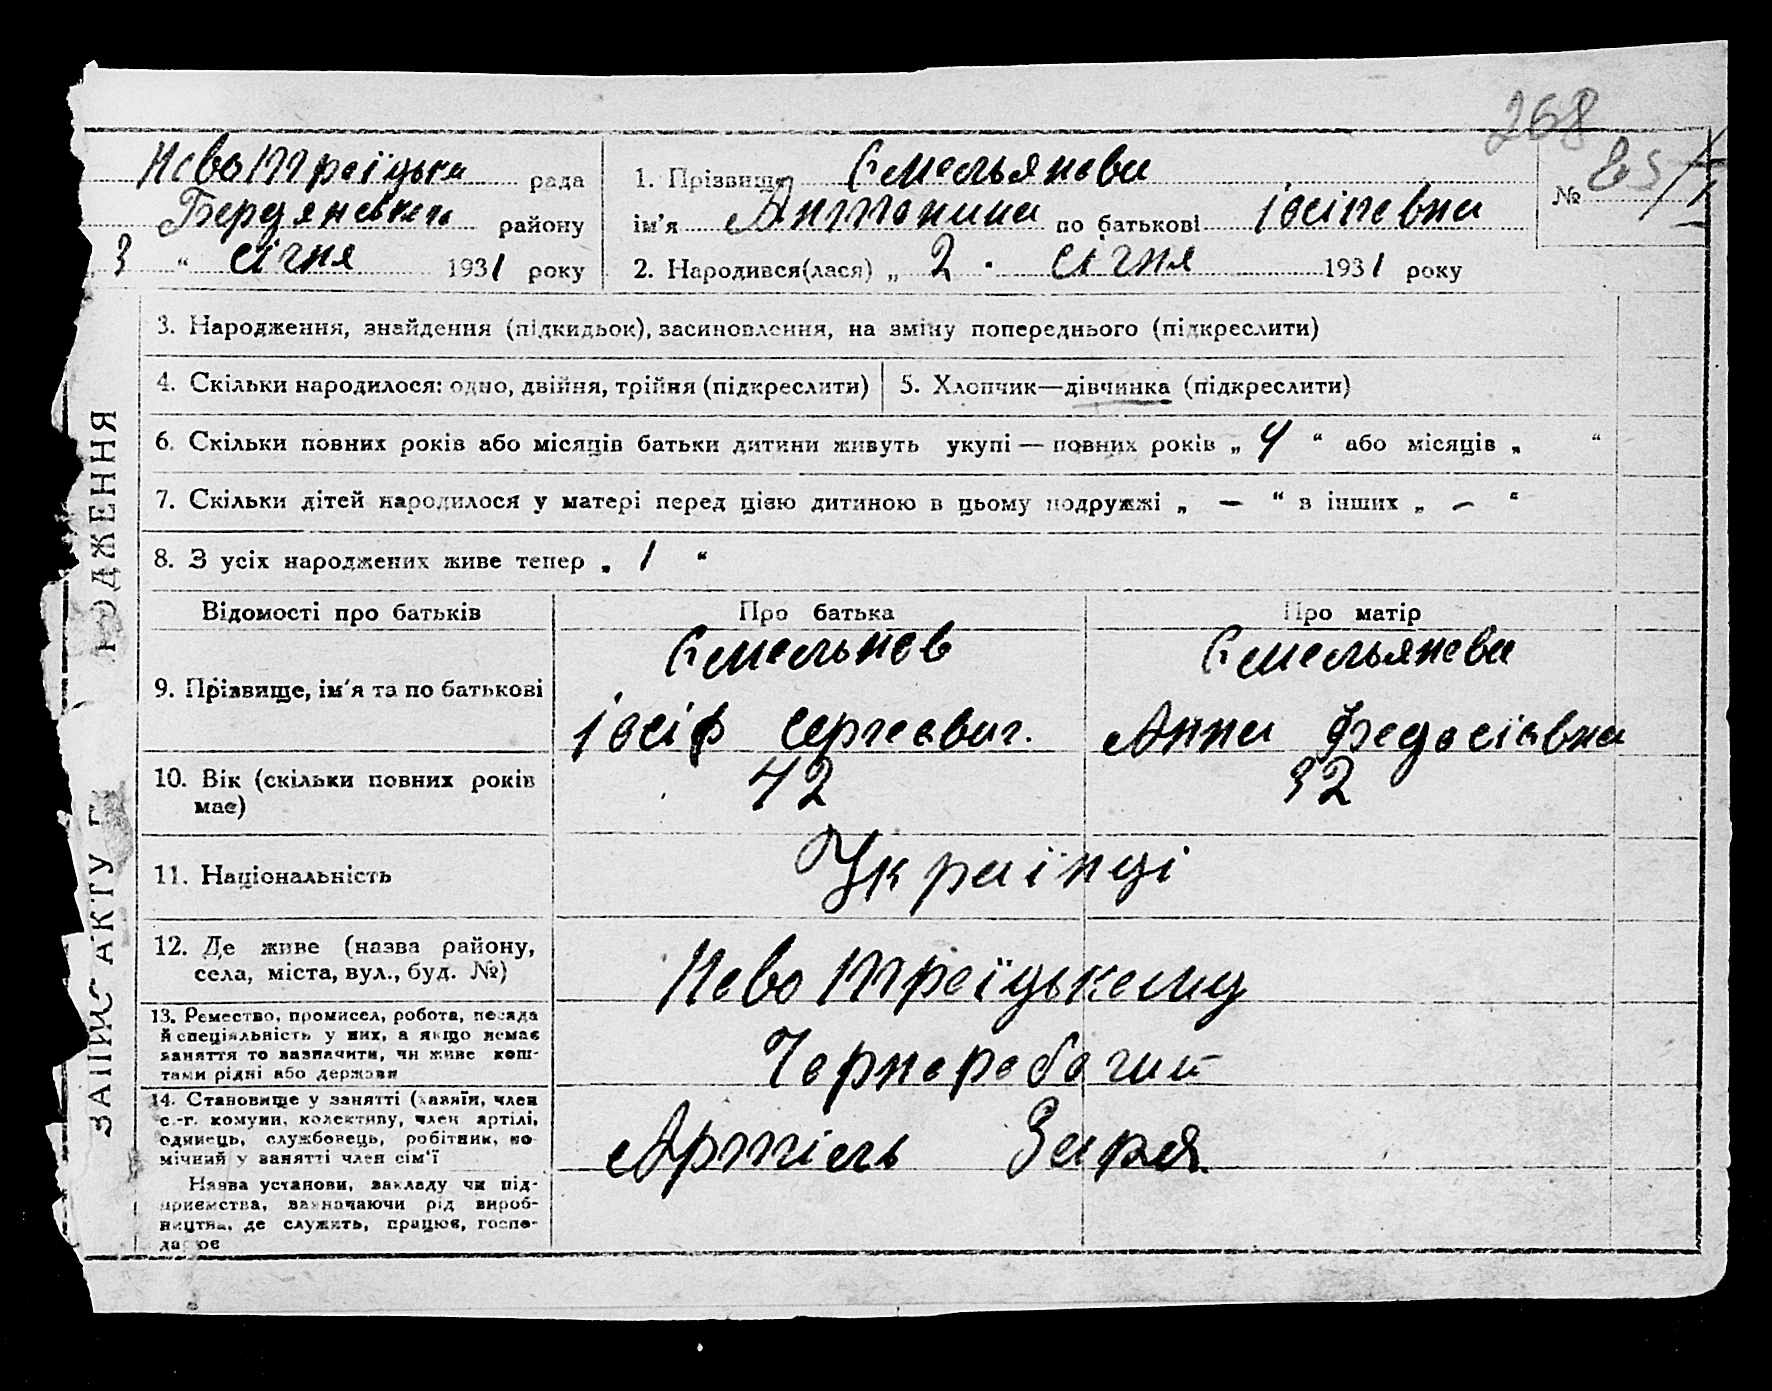 268
НовоТроїцька рада
Бердянського району
„ 3 “ січня 1931 року
1. Прізвище Ємельянова
ім'я Антонина по батькові Іосіповна
2. Народився(лася) „ 2 · січня 1931 року
№ 85/1
ЗАПИС АКТУ РОДЖЕННЯ
3. Народження, знайдення (підкидьок), засиновлення, на зміну попереднього (підкреслити)
4. Скільки народилося: одно, двійня, трійня (підкреслити)
5. Хлопчик—дівчинка (підкреслити)
6. Скільки повних років або місяців батьки дитини живуть укупі — повних років „ 4 “ або місяців „ “
7. Скільки дітей народилося у матері перед цією дитиною в цьому подружжі „ — “ в інших „ — “
8. З усіх народжених живе тепер „ 1 “
Відомості про батьків
Про батька
Про матір
9. Прізвище, ім'я та по батькові
Ємельнов
Іосіф Сергеович.
Ємельянова
Анна Федосіовна
10. Вік (скільки повних років
має)
42
32
11. Національність
Українці
12. Де живе (назва району,
села, міста, вул., буд. №)
НовоТроїцькому
13. Ремество, промисел, робота, посада
й спеціяльність у них, а якщо немає
заняття то зазначити, чи живе кош-
тами рідні або держави
Чорноробочий
14. Становище у занятті (хазяїн, член
с.-г. комуни, колективу, член артілі,
одинець, службовець, робітник, по-
мічний у занятті член сім'ї
Артіль Заря
Назва установи, закладу чи під-
приємства, зазначаючи рід вироб-
ництва, де служить, працює, госпо-
дарює